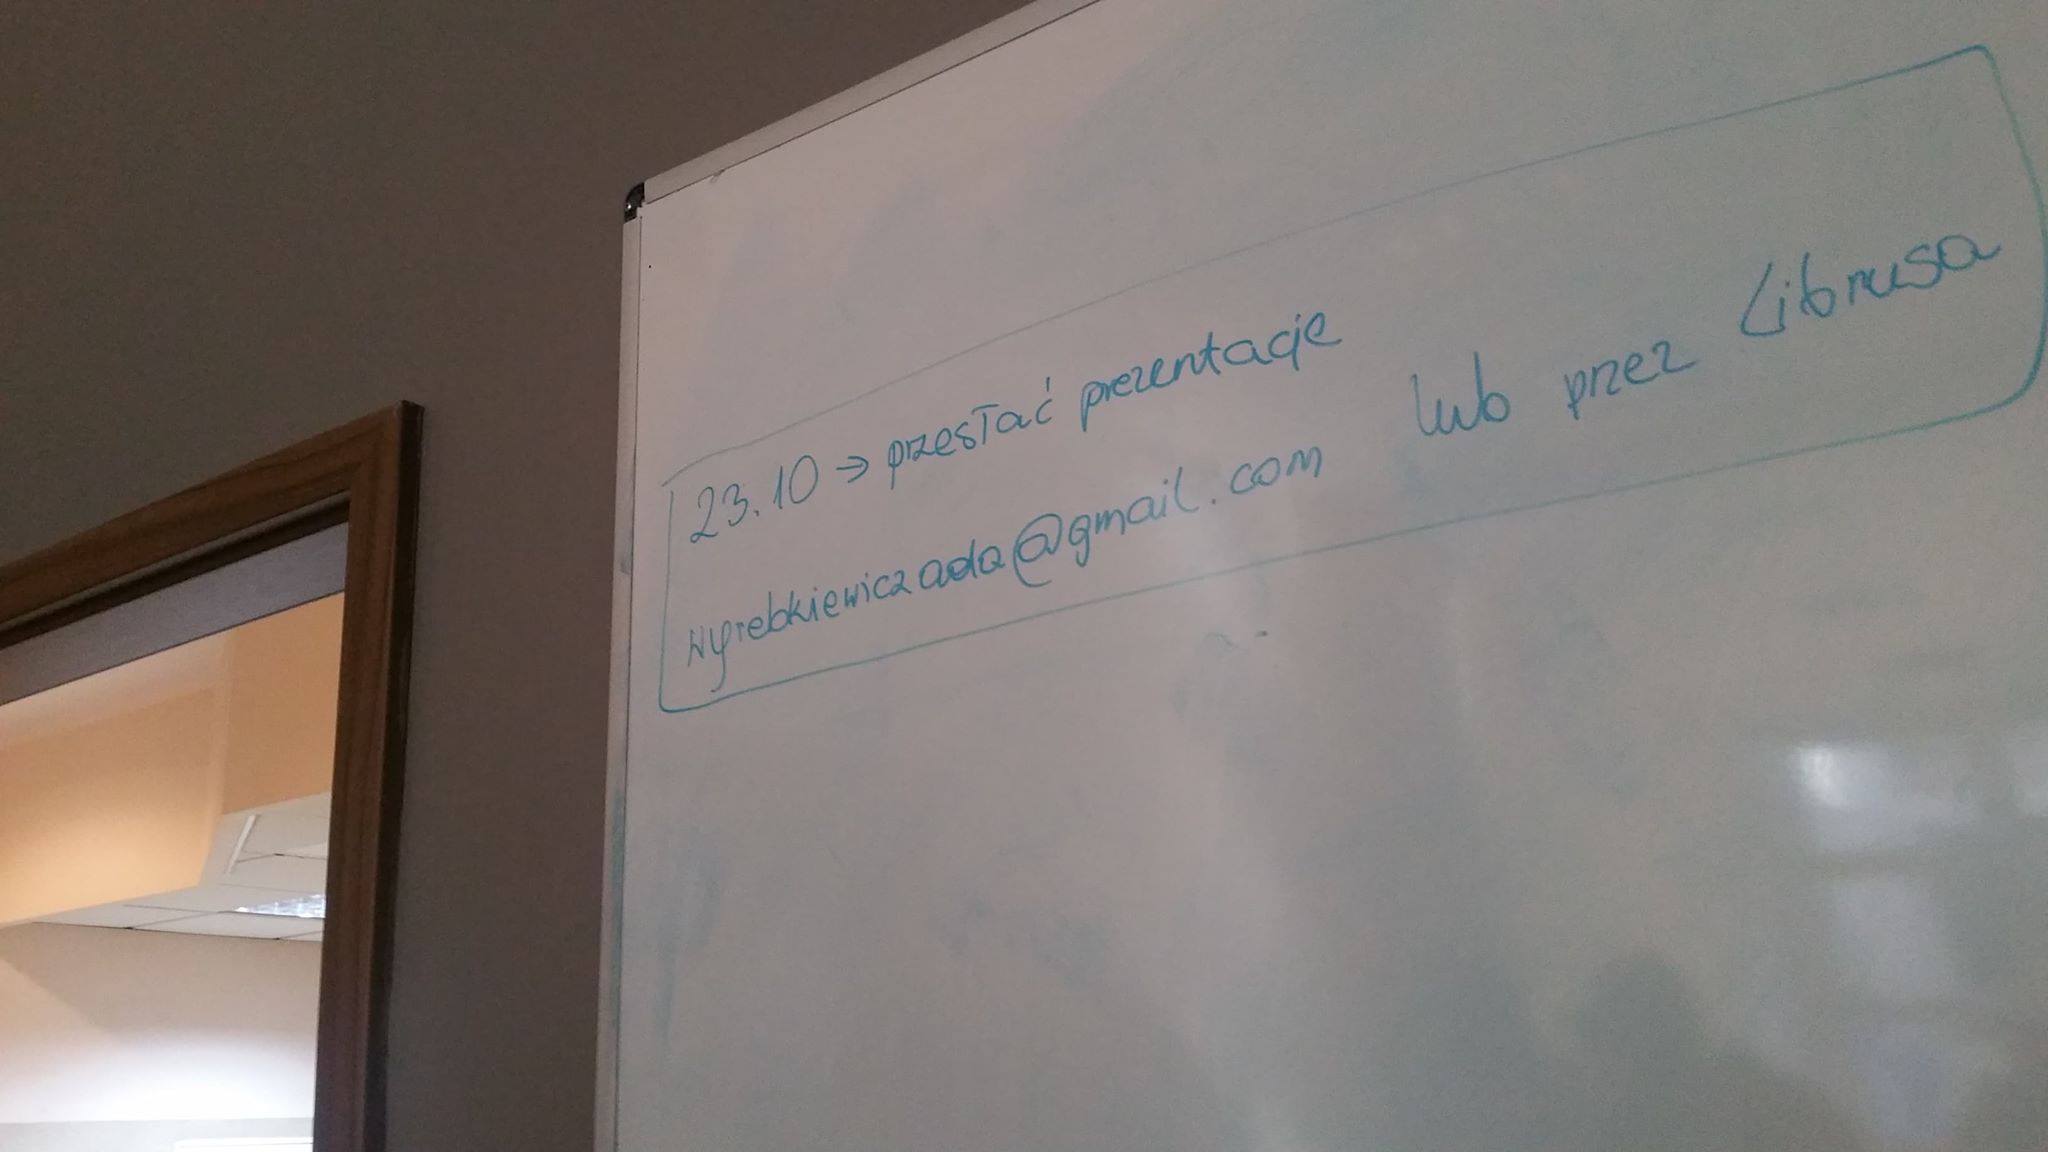 23.10 → przesłać prezentacje
wyrebkiewiczada@gmail.com lub przez Librusa